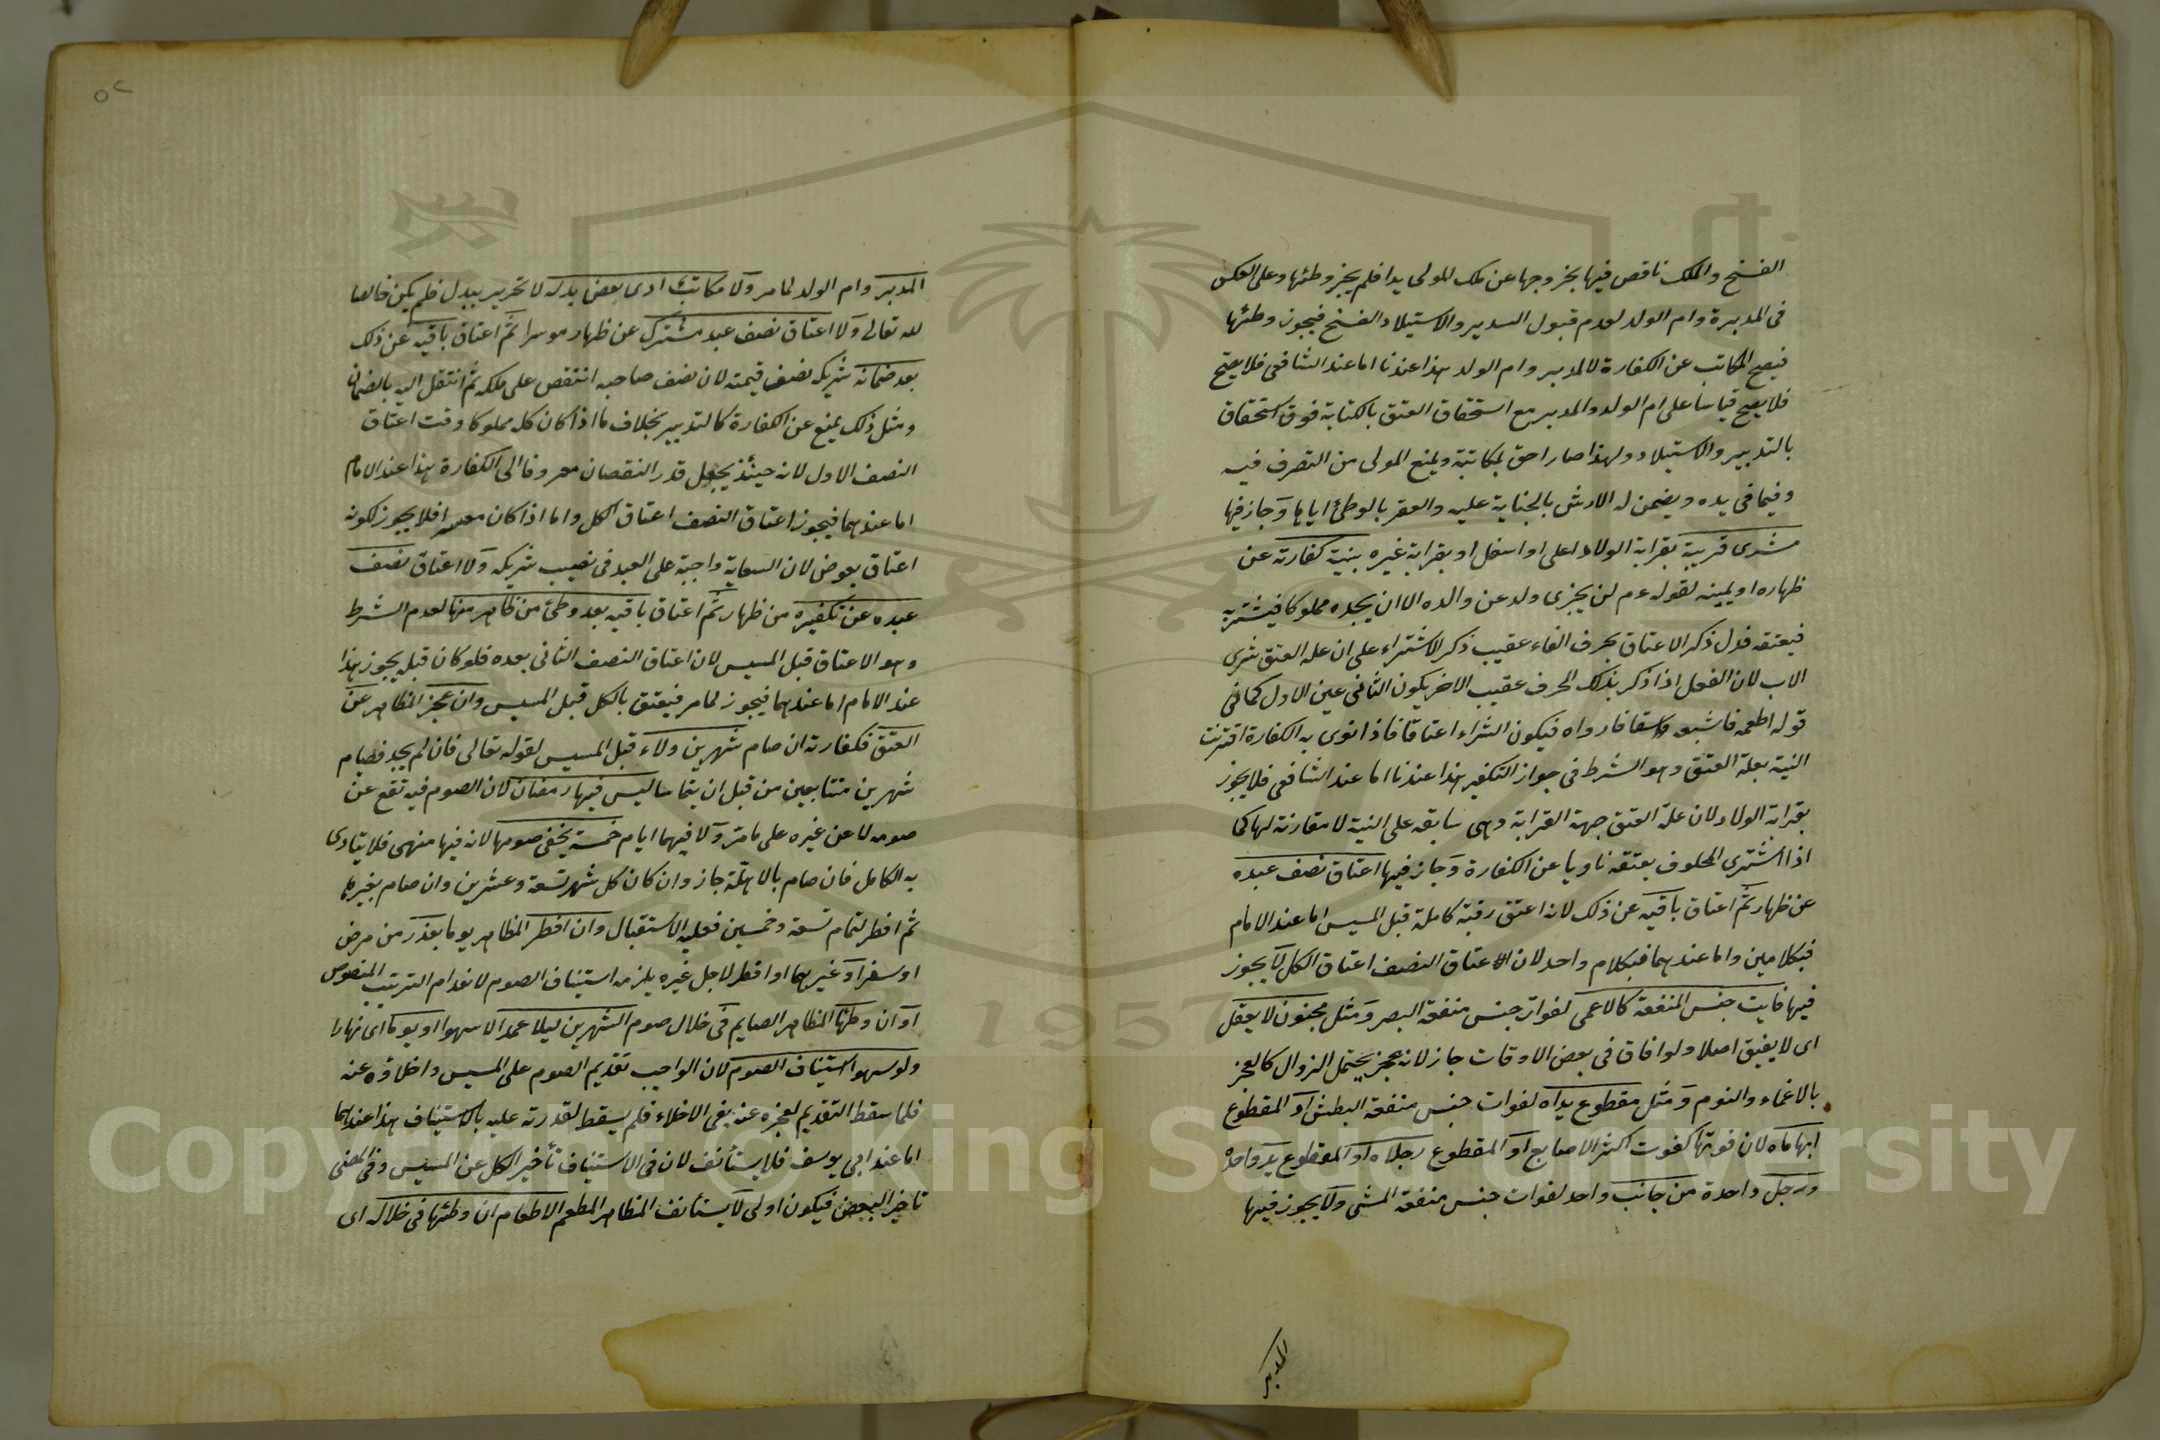 الفسخ والملك ناقص فيها بخروجها عن ملك المولى يدا فلم يجز وطئها وعلى العكس
فى المدبرة وام الولد لعدم قبول التدبير والاستيلاد الفسخ فيجوز وطئها
فيصح المكاتب عن الكفارة لا المدبر وام الولد هذا عندنا اما عند الشافعى فلا يصح
فلا يصح قياسا على ام الولد والمدبر مع استحقاق العتق بالكتابة فوق استحقاق
بالتدبير والاستيلاد ولهذا صار احق بمكاتبة ويمنع المولى من التصرف فيه
وفيما فى يده ويضمن له الارش بالجناية عليه والعقر بالوطئ اياها وجاز فيها
مشرى قريبه بقرابة الولاد اعلى او اسفل او بقرابة غيره بنية كفارته عن
ظهاره او يمينه لقوله عم لن يجزى ولد عن والده الا ان يجده مملوكا فيشتريه
فيعتقه فدل ذكر الاعتاق بحرف الفاء عقيب ذكر الاشتراء على ان علة العتق شرى
الاب لان الفعل اذا ذكر بذلك الحرف عقيب الاخر يكون الثانى عين الاول كما فى
قوله اطعمه فاشبعه وسقا فارواه فيكون الشراء اعتاقا فاذا نوى به الكفارة اقترنت
النية بعلة العتق وهو الشرط فى جواز التكفير هذا عندنا اما عند الشافعى فلا يجوز
بقرابة الولاد لان علة العتق جهة القرابة وهى سابقه على النية لا مقارنة لها كما
اذا اشترى المحلوف بعتقه ناويا عن الكفارة وجاز فيها اعتاق نصف عبده
عن ظهار ثم اعتاق باقيه عن ذلك لانه اعتق رقبة كاملة قبل المسيس اما عند الامام
فبكلامين واما عندهما فبكلام واحد لان اعتاق النصف اعتاق الكل لا يجوز
فيها فايت جنس المنفعة كالاعمى لفوات جنس منفعة البصر ومثل مجنون لا يعقل
اى لا يفيق اصلا ولو افاق فى بعض الاوقات جاز لانه عجز يحتمل الزوال كالعجز
بالاغماء والنوم ومثل مقطوع يداه لفوات جنس منفعة البطش او المقطوع
ابهاماه لان فوتها كفوت اكثر الاصابع او المقطوع رجلاه او المقطوع يد واحدة
ورجل واحدة من جانب واحد لفوات جنس منفعة المشى ولا يجوز فيها
المدبر
٥٢
المدبر وام الولد لما مر ولا مكاتب ادى بعض بدله لا تحرير ببدل فلم يكن خالصا
لله تعالى ولا اعتاق نصف عبد مشترك عن ظهار موسرا ثم اعتاق باقيه عن ذلك
بعد ضمانه شريكه نصف قيمته لان نصف صاحبه انتقص على ملكه ثم انتقل اليه بالضمان
ومثل ذلك يمنع عن الكفارة كالتدبير بخلاف ما اذا كان كل مملوكا وقت اعتاق
النصف الاول لانه حينئذ يجعل قدر النقصان مصروفا الى الكفارة هذا عند الامام
اما عندهما فيجوز اعتاق النصف اعتاق الكل واما اذا كان معسرا فلا يجوز لكونه
اعتاق بعوض لان السعاية واجبة على العبد فى نصيب شريكه ولا اعتاق نصف
عبده عن تكفيره من ظهار ثم اعتاق باقيه بعد وطئ من ظاهر منها لعدم الشرط
وهو الاعتاق قبل المسيس لان اعتاق النصف الثانى بعده فلو كان قبله يجوز هذا
عند الامام اما عندهما فيجوز لما مر فيعتق بالكل قبل المسيس وان عجز المظاهر عن
العتق فكفارته ان صام شهرين ولاء قبل المسيس لقوله تعالى فان لم يجد فصيام
شهرين متتابعين من قبل ان يتماسا ليس فيها رمضان لان الصوم فيه تقع عن
صومه لا عن غيره على ما مر ولا فيهما ايام خمسة يخفى صومها لانه فيها منهى فلا يتادى
به الكامل فان صام بالاهلة جاز وان كان كل شهر تسعة وعشرين وان صام بغيرها
ثم افطر لتمام تسعة وخمسين فعليه الاستقبال وان افطر المظاهر يوما بعذر من مرض
او سفر او غيرهما او افطر لاجل غيره يلزمه استيناف الصوم لانعدام الترتيب المنصوص
او ان وطئها المظاهر الصايم فى خلال صوم الشهرين ليلا عمدا لا سهوا او يوما اى نهارا
ولو سهوا استيناف الصوم لان الواجب تقديم الصوم على المسيس واخلاؤه عنه
فلما سقط التقديم لعجزه عنه بقى الاخلاء فلم يسقط لقدرته عليه بالاستيناف هذا عندهما
اما عند ابى يوسف فلا يستأنف لان فى الاستيناف تأخير الكل عن المسيس وفى المضى
تاخير البعض فيكون اولى لا يستأنف المظاهر المطعم الاطعام ان وطئها فى خلاله اى
Copyright © King Saud University
1957